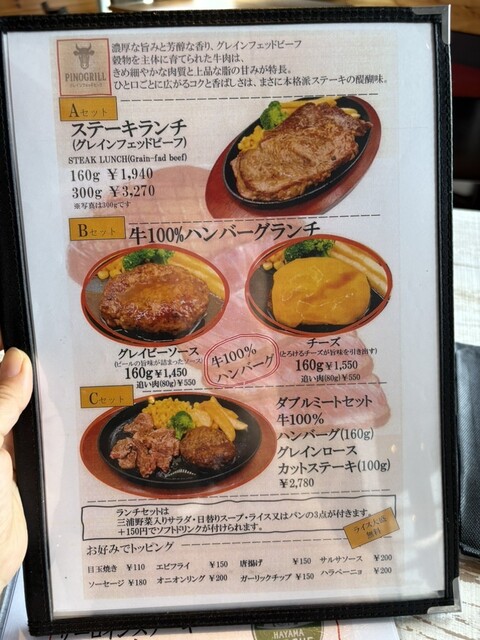 PINOGRILL
濃厚な旨みと芳醇な香り、グレインフェッドビーフ
穀物を主体に育てられた牛肉は、
きめ細やかな肉質と上品な脂の甘みが特長。
ひと口ごとに広がるコクと香ばしさは、まさに本格派ステーキの醍醐味。
Aセット
ステーキランチ
(グレインフェッドビーフ)
STEAK LUNCH(Grain-fad beef)
160g ￥1,940
300g ￥3,270
※写真は300gです
Bセット
牛100%ハンバーグランチ
グレイビーソース
(ビールの旨味が詰まったソース)
160g￥1,450
追い肉(80g)￥550
牛100%
ハンバーグ
チーズ
(とろけるチーズが旨味を引き出す)
160g￥1,550
追い肉(80g)￥550
Cセット
ダブルミートセット
牛100%
ハンバーグ(160g)
グレインロース
カットステーキ(100g)
￥2,780
ランチセットは
三浦野菜入りサラダ・日替りスープ・ライス又はパンの3点が付きます。
+150円でソフトドリンクが付けられます。
ライス大盛
無料
お好みでトッピング
目玉焼き ￥110 エビフライ ￥150 唐揚げ ￥150 サルサソース ￥200
ソーセージ ￥180 オニオンリング ￥200 ガーリックチップ ￥150 ハラペーニョ ￥200
HAYAMA